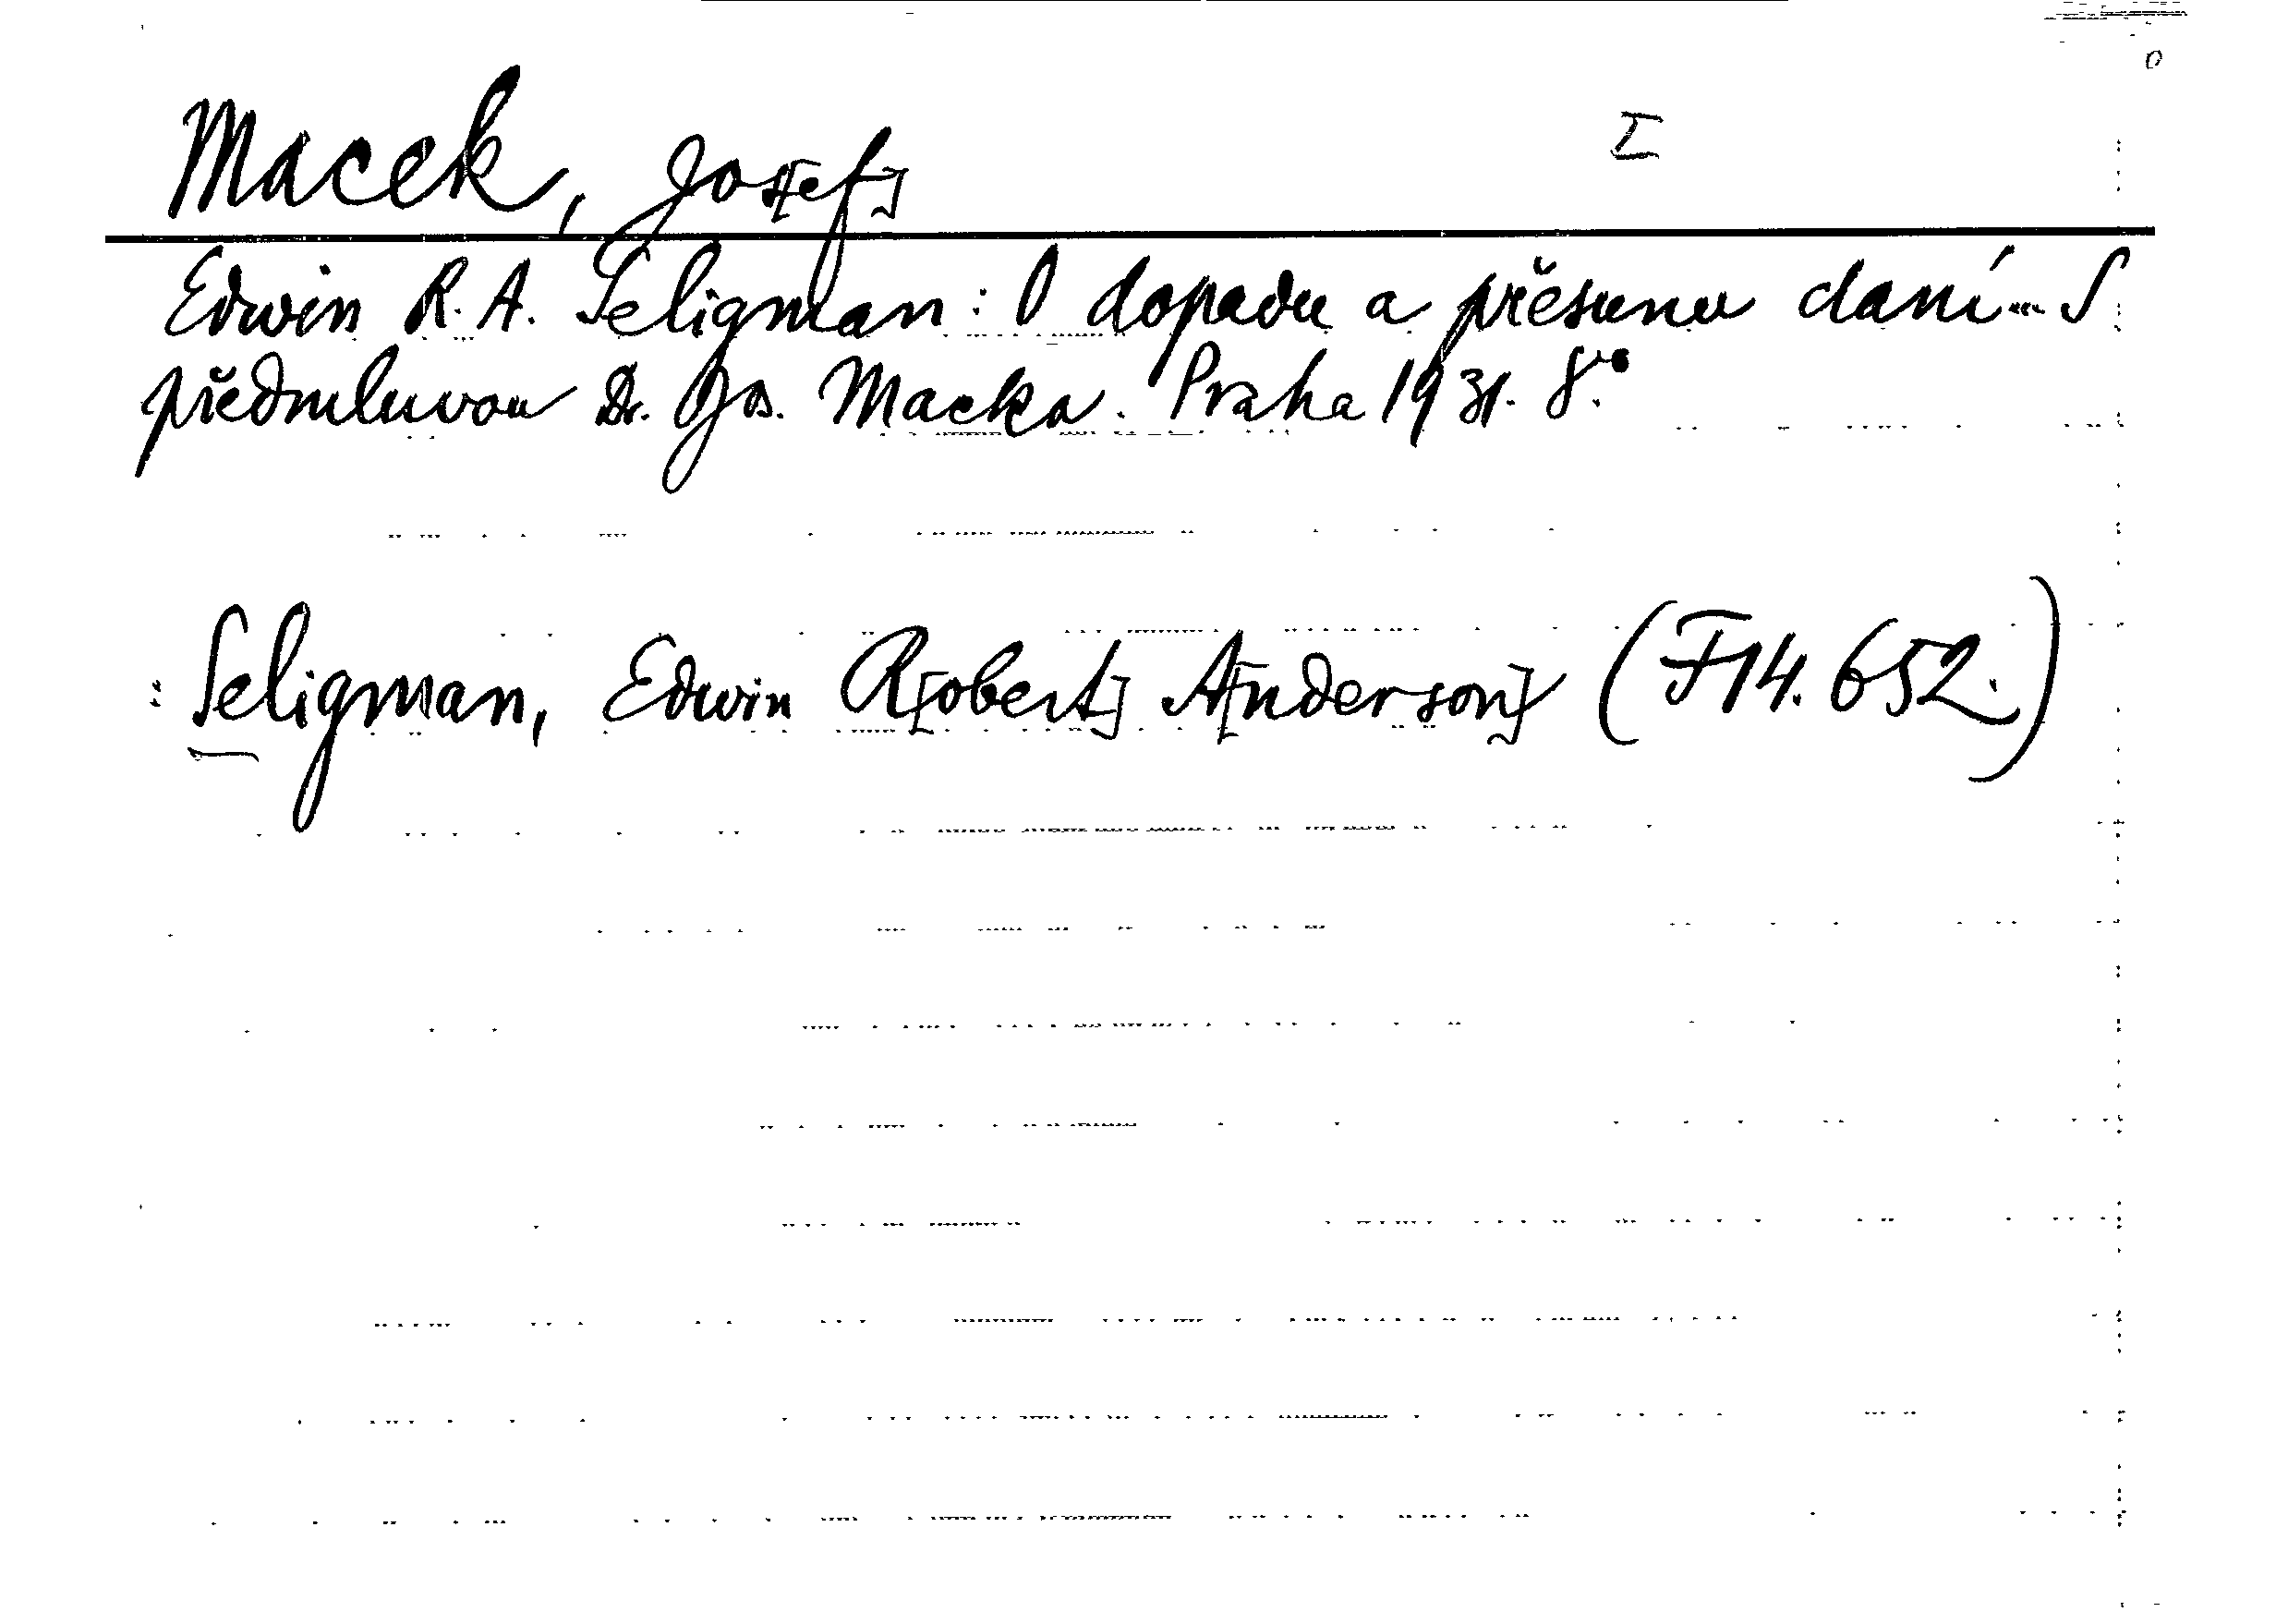 Macek, Jos[ef] I
Edwin R. A. Seligman: O dopadu a přesunu daní... S
předmluvou Dr. Jos. Macka. Praha 1931. 8°.
: Seligman, Edwin R[obert] A[nderson] (F14.652.)